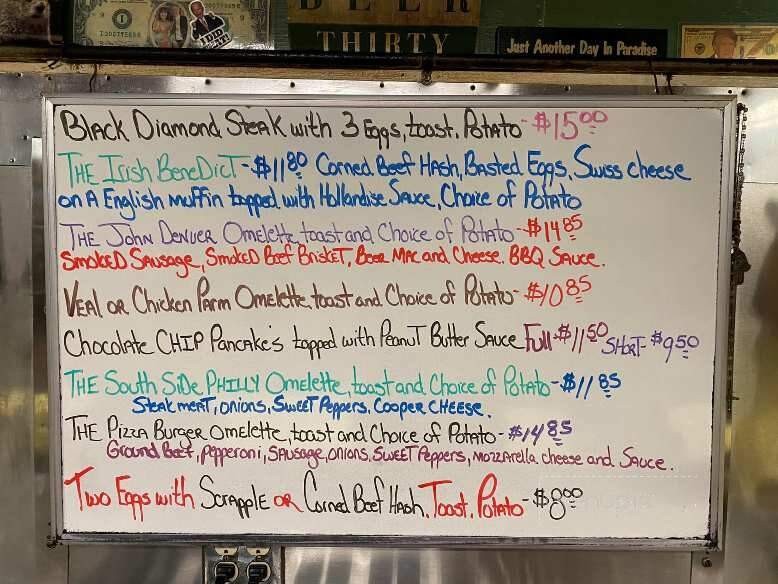 BEER
THIRTY
Just Another Day In Paradise
I DID THAT!
Black Diamond Steak with 3 Eggs, toast, Potato - $15.00
THE Irish BeneDicT - $11.80 Corned Beef Hash, Basted Eggs, Swiss cheese
on A English muffin topped with Hollandise Sauce, Choice of Potato
THE John Denver Omelette, toast and Choice of Potato - $14.85
Smoked Sausage, Smoked Beef Brisket, Beer Mac and Cheese, BBQ Sauce.
Veal or Chicken Parm Omelette, toast and Choice of Potato - $10.85
Chocolate CHIP Pancake's topped with Peanut Butter Sauce Full - $11.50 Short - $9.50
THE South Side PHILLY Omelette, toast and Choice of Potato - $11.85
Steak meat, onions, Sweet Peppers, Cooper Cheese.
THE Pizza Burger Omelette, toast and Choice of Potato - $14.85
Ground Beef, Pepperoni, Sausage, onions, Sweet Peppers, Mozzarella cheese and Sauce.
Two Eggs with Scrapple or Corned Beef Hash, Toast, Potato - $8.00